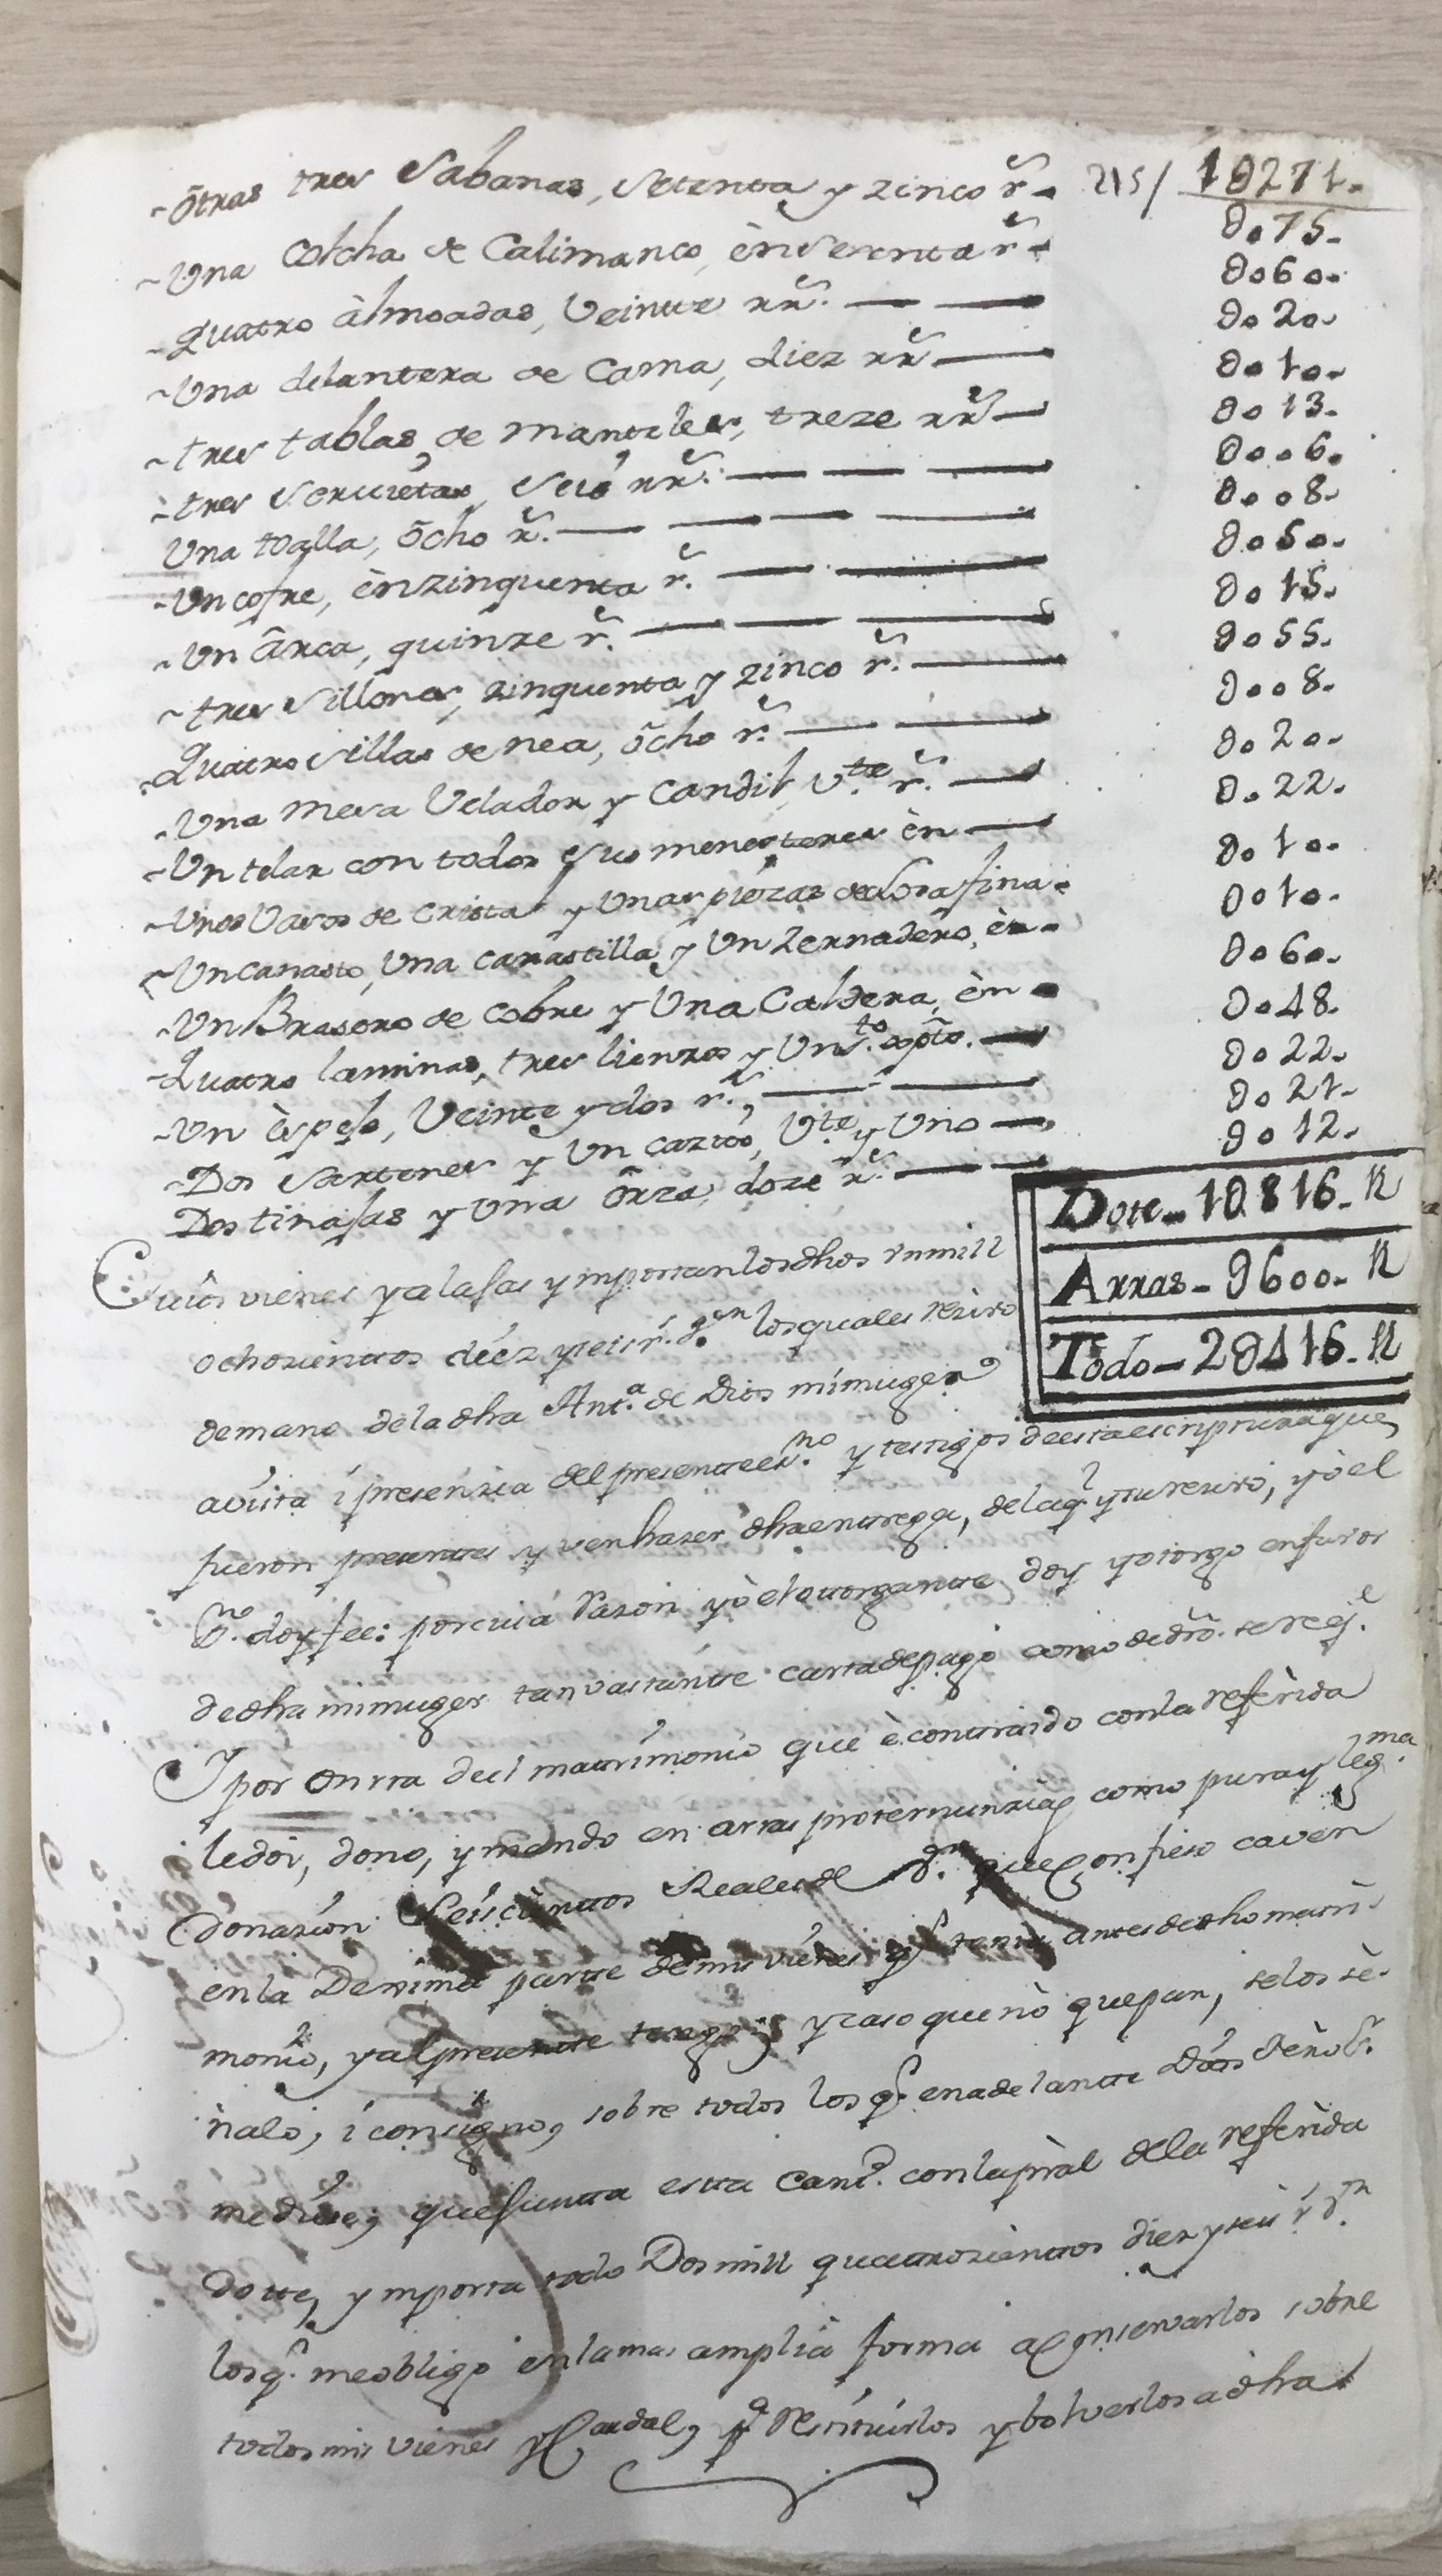 ~ õtras tres Sabanas, Setenta y zinco r.s 215/ 1θ271.
~ Una Colcha de Calimanco, èn Sesenta r.s θo75.
θo60.
~ Quatro àlmoadas, Veinte rr.s θo20.
~ Una delantera de Cama, diez rr.s θo10.
~ tres tablas de manteles, treze rr.s θo13.
~ tres Servietas, Seis rr.s θoo6.
Una toalla, õcho r.s θoo8.
~ Un cofre, ènzinquenta r.s θo50.
~ Un ârca, quinze r.s θo15.
~ tres Sillones, zinquenta y zinco r.s θo55.
Quatro Sillas de nea, õcho r.s θoo8.
~ Una mesa Velador y Candil, V.te r.s θo20.
~ Un telar con todos sus menesteres èn θo22.
~ Unos Vasos de Cristal y Unas piezas de Losa fina θo10.
~ Un canasto, Una canastilla y Un Zernadero, èn θo10.
~ Un Brasero de Cobre y Una Caldera, èn θo60.
~ Quatro laminas, tres lienzos y Un S.to xpto. θo48.
~ Un Èspejo, Veinte y dos r.s θo22.
~ Dos Sartenes y Un cazzo, V.te y Uno θo21.
Dos tinajas y Una Ôrza, doze r.s θo12.
Dote - 1θ816. R
Arras - θ600. R
Todo - 2θ416. R
Cuios vienes y alajas ymportan los dhos Un mill
ochozientos diez y seis r.s v.on los quales reziuo
de mano de la dha Ant.a de Dios mi muger
a vista i presenzia del presente es.no y testigos de esta escriptura que
fueron presentes y ven hazer dha entrega, de la q.l y su reziuo, yo el
S.no doy fee: por cuia Razon yo el otorgante doy y otorgo en fauor
de dha mi muger tan vastante carta de pago como de dro. se req.e
I por onrra del matrimonio que è contraido con la referida
le doi, dono, y mando en arras proternunzias como pura y leg.ma
donazion Seiscientos Reales de v.on que confieso caven
en la Dezima parte de mis vienes q.e tenia antes de dho matri-
monio, y al presente tengo; y caso que no quepan, se los sè-
ñalo, i consigno, sobre todos los q.e en adelante Dios Señor
me diese; que junta esta Cant.d con la pràl de la referida
dotte, ymporta todo Dos mill quatrozientos diez y seis r.s v.on
los q.e me obligo en la mas amplia forma a conservarlos sobre
todos mis vienes y Caudal, p.a Restituirlos y bolverlos a dha